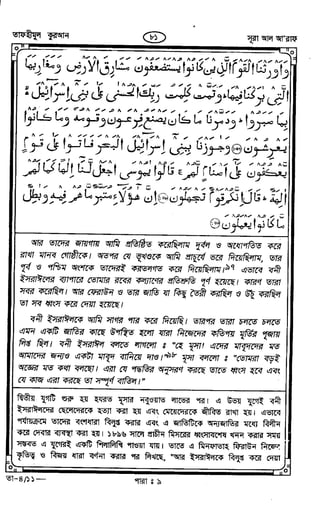 তাফহীমুল কুরআন
৮১
সূরা আল আ'রাফ
وَأَوْرَثْنَا الْقَوْمَ الَّذِينَ كَانُوا يُسْتَضْعَفُونَ مَشَارِقَ الْأَرْضِ وَمَغَارِبَهَا
الَّتِي بَارَكْنَا فِيهَا وَتَمَّتْ كَلِمَتُ رَبِّكَ الْحُسْنَىٰ عَلَىٰ بَنِي إِسْرَائِيلَ
بِمَا صَبَرُوا وَدَمَّرْنَا مَا كَانَ يَصْنَعُ فِرْعَوْنُ وَقَوْمُهُ وَمَا كَانُوا
يَعْرِشُونَ وَجَاوَزْنَا بِبَنِي إِسْرَائِيلَ الْبَحْرَ فَأَتَوْا عَلَىٰ قَوْمٍ
يَعْكُفُونَ عَلَىٰ أَصْنَامٍ لَهُمْ قَالُوا يَا مُوسَى اجْعَلْ لَنَا إِلَٰهًا كَمَا لَهُمْ
آلِهَةٌ قَالَ إِنَّكُمْ قَوْمٌ تَجْهَلُونَ إِنَّ هَٰؤُلَاءِ مُتَبَّرٌ مَا هُمْ فِيهِ وَبَاطِلٌ
مَا كَانُوا يَعْمَلُونَ
আর তাদের জায়গায় আমি প্রতিষ্ঠিত করেছিলাম দুর্বল ও অধোপতিত করে
রাখা মানব গোষ্ঠীকে। অতপর যে ভূখণ্ডকে আমি প্রাচুর্যে ভরে দিয়েছিলাম, তার
পূর্ব ও পশ্চিম অংশকে তাদেরই করতলগত করে দিয়েছিলাম।৯৭ এভাবে বনী
ইসরাঈলের ব্যাপারে তোমার রবের কল্যাণের প্রতিশ্রুতি পূর্ণ হয়েছে। কারণ তারা
সবর করেছিল। আর ফেরাউন ও তার জাতি যা কিছু তৈরী করছিল ও উঁচু করছিল
তা সব ধ্বংস করে দেয়া হয়েছে।
বনী ইসরাঈলকে আমি সাগর পার করে দিয়েছি। তারপর তারা চলতে চলতে
এমন একটি জাতির কাছে উপস্থিত হলো যারা নিজেদের কতিপয় মূর্তির পূজায়
লিপ্ত ছিল। বনী ইসরাঈল বলতে লাগলো ঃ "হে মূসা! এদের মাবুদদের মত
আমাদের জন্যও একটা মাবুদ বানিয়ে দাও।"৯৮ মূসা বললো ঃ "তোমরা বড়ই
অজ্ঞের মত কথা বলছো। এরা যে পদ্ধতির অনুসরণ করছে তাতে ধ্বংস হবে এবং
যে কাজ এরা করছে তা সম্পূর্ণ বাতিল।"
দ্বিতীয় যুগটি শুরু হয় হযরত মূসার নবুওয়াত লাভের পর। এ উভয় যুগেই বনী
ইসরাঈলদের ছেলেদেরকে হত্যা করা হয় এবং মেয়েদেরকে জীবিত রাখা হয়। এভাবে
পর্যায়ক্রমে তাদের বংশধারা বিলুপ্ত করার এবং এ জাতিটিকে অন্যজাতির মধ্যে বিলীন
করে দেবার ব্যবস্থা করা হয়। ১৮৯৬ সালে প্রাচীন মিসরের ধ্বংসাবশেষ খনন করার সময়
সম্ভবত এ যুগেরই একটি শিলালিপি পাওয়া যায়। তাতে এ মিনফাতাহ ফিরাউন নিজের
কৃতিত্ব ও বিজয় ধারা বর্ণনা করার পর লিখছে, "আর ইসরাঈলকে বিলুপ্ত করে দেয়া
তা-৪/১১—
পারা ঃ ৯